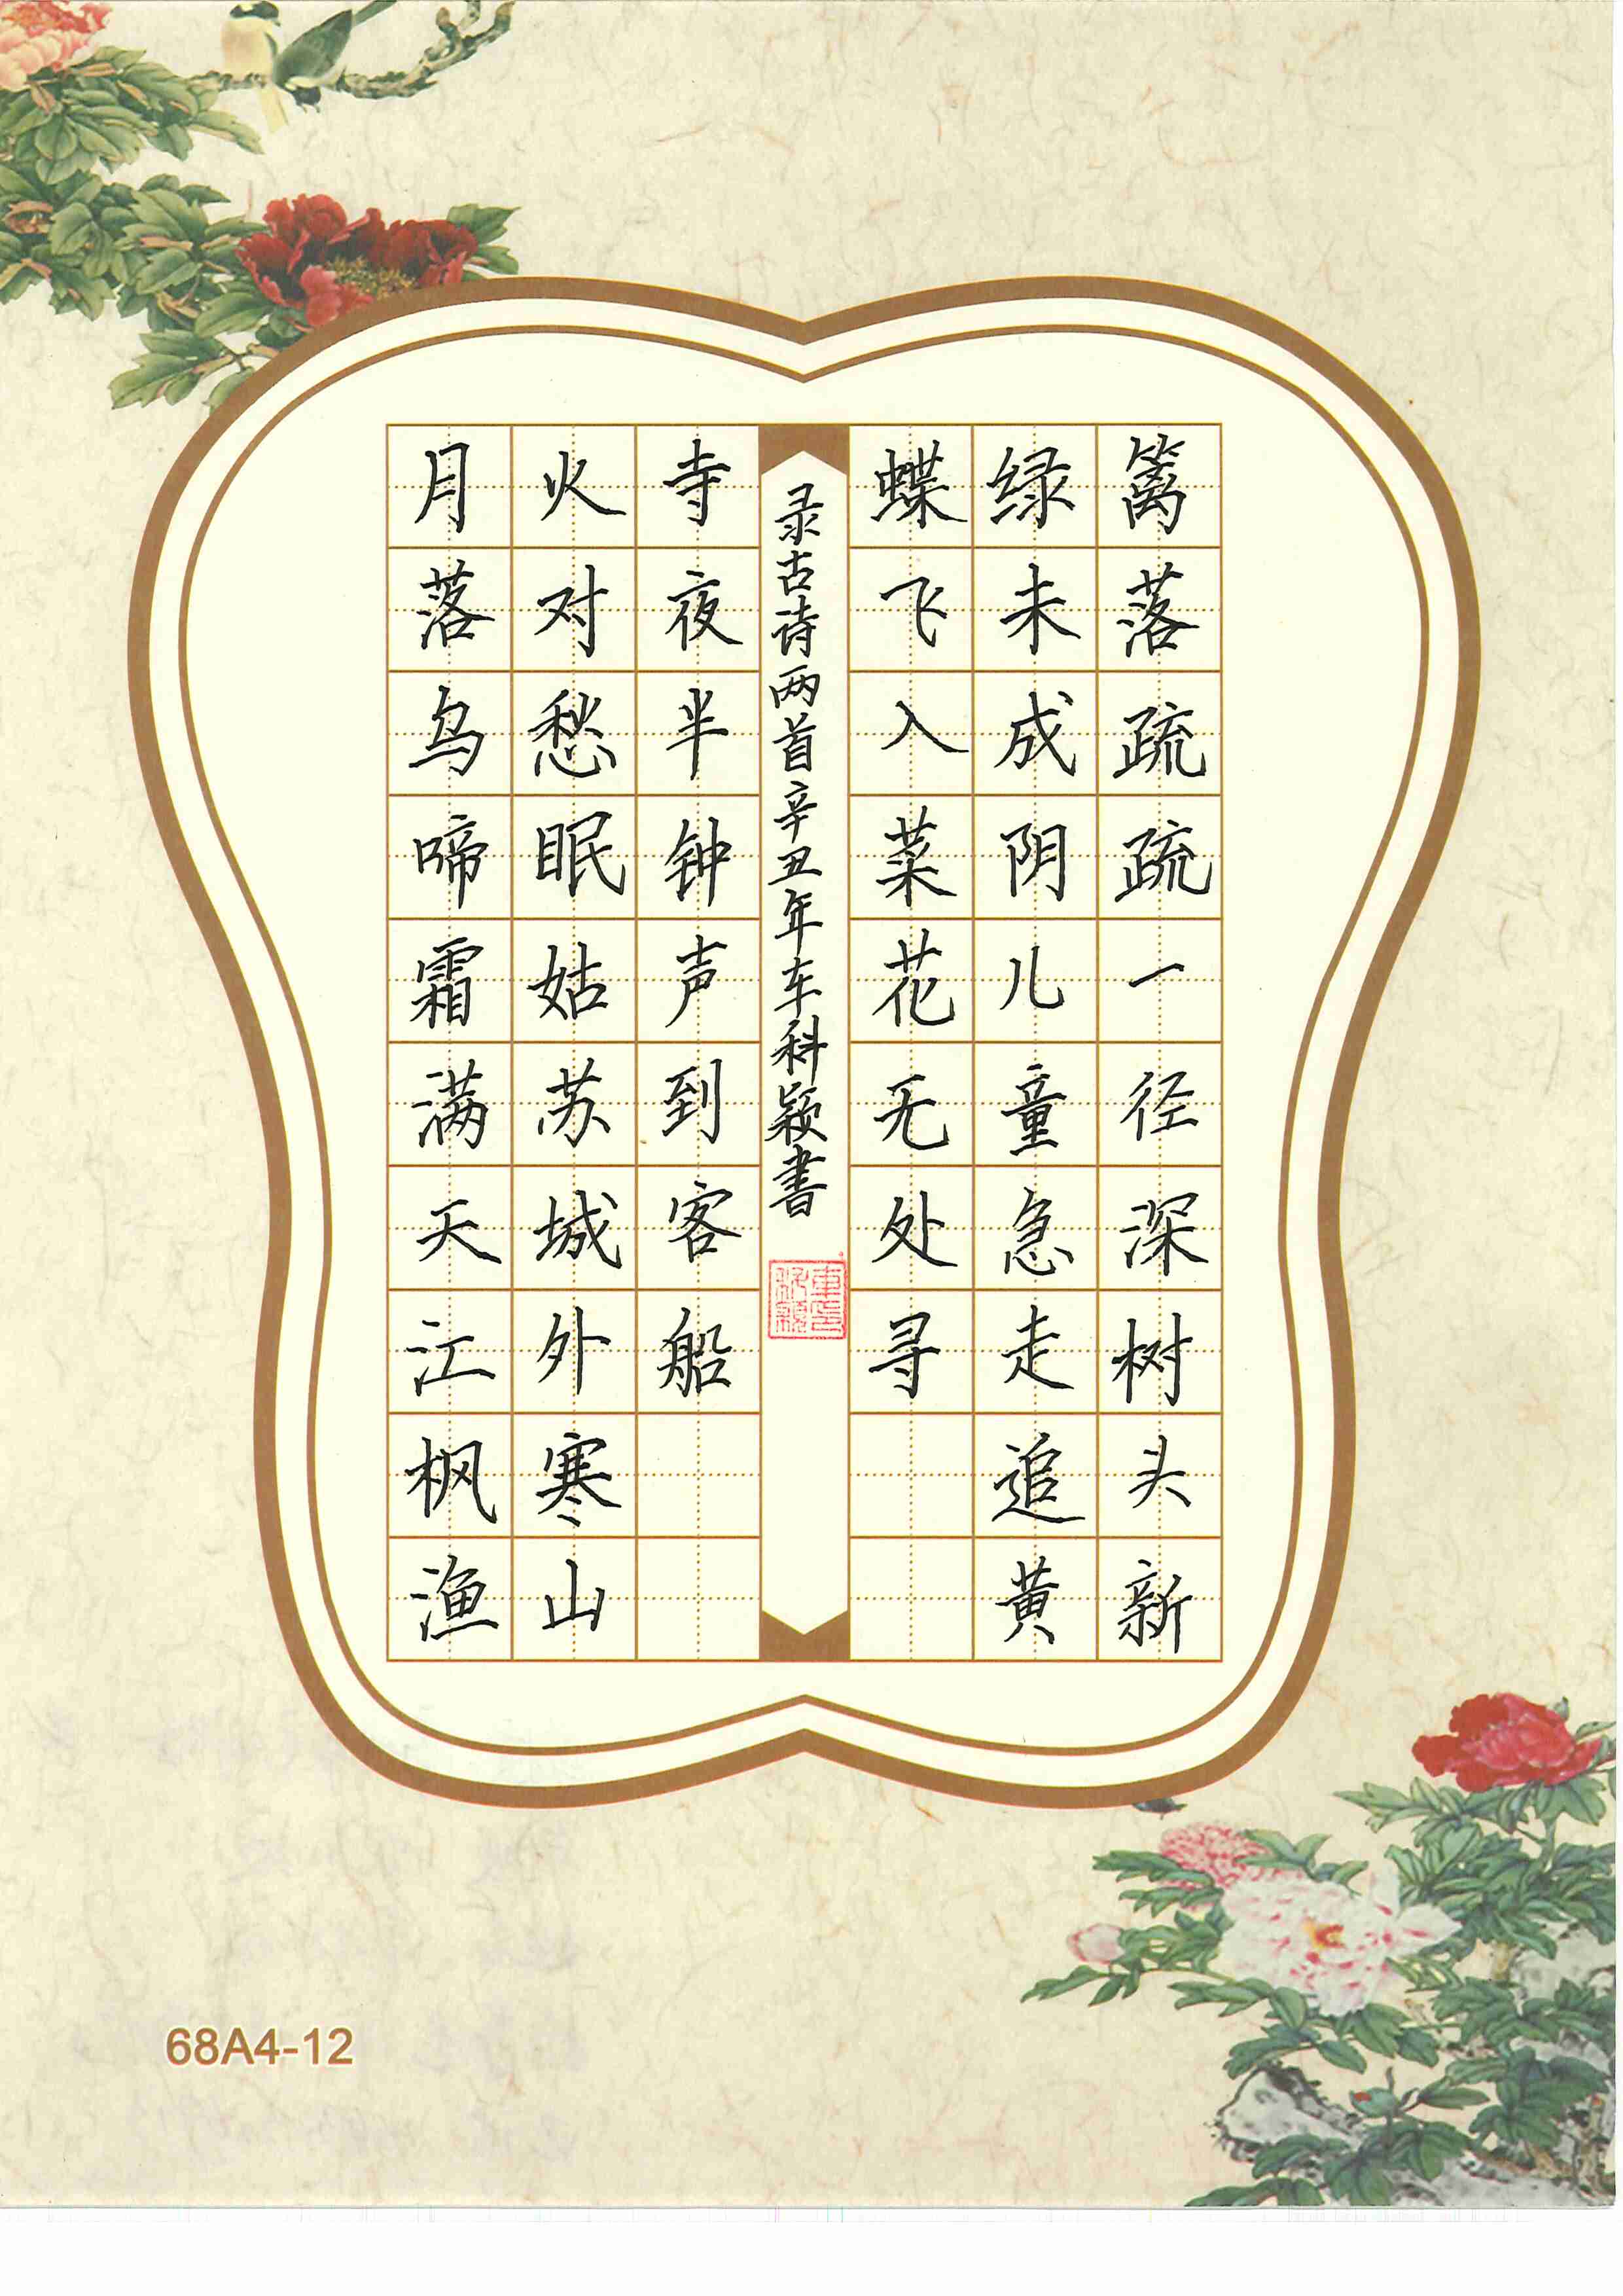 篱落疏疏一径深树头新
绿未成阴儿童急走追黄
蝶飞入菜花无处寻
月落乌啼霜满天江枫渔
火对愁眠姑苏城外寒山
寺夜半钟声到客船
录古诗两首辛丑年车科颖书
68A4-12